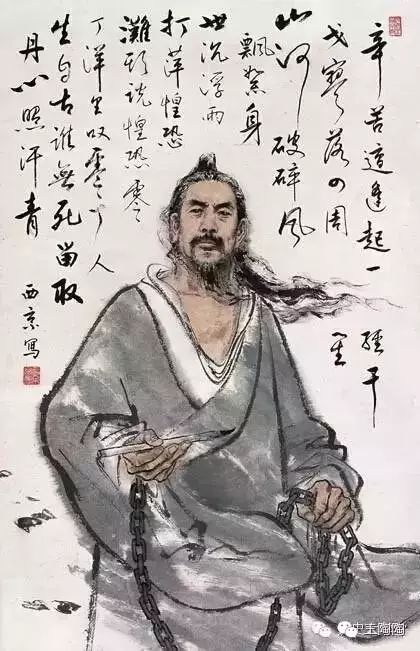 辛苦遭逢起一
戈寥落四周
山河破碎风
飄絮身
世沉浮雨
打萍惶恐
灘頭說惶恐零
丁洋里叹零丁人
生自古誰無死留取
丹心照汗青
西京寫
經干
星